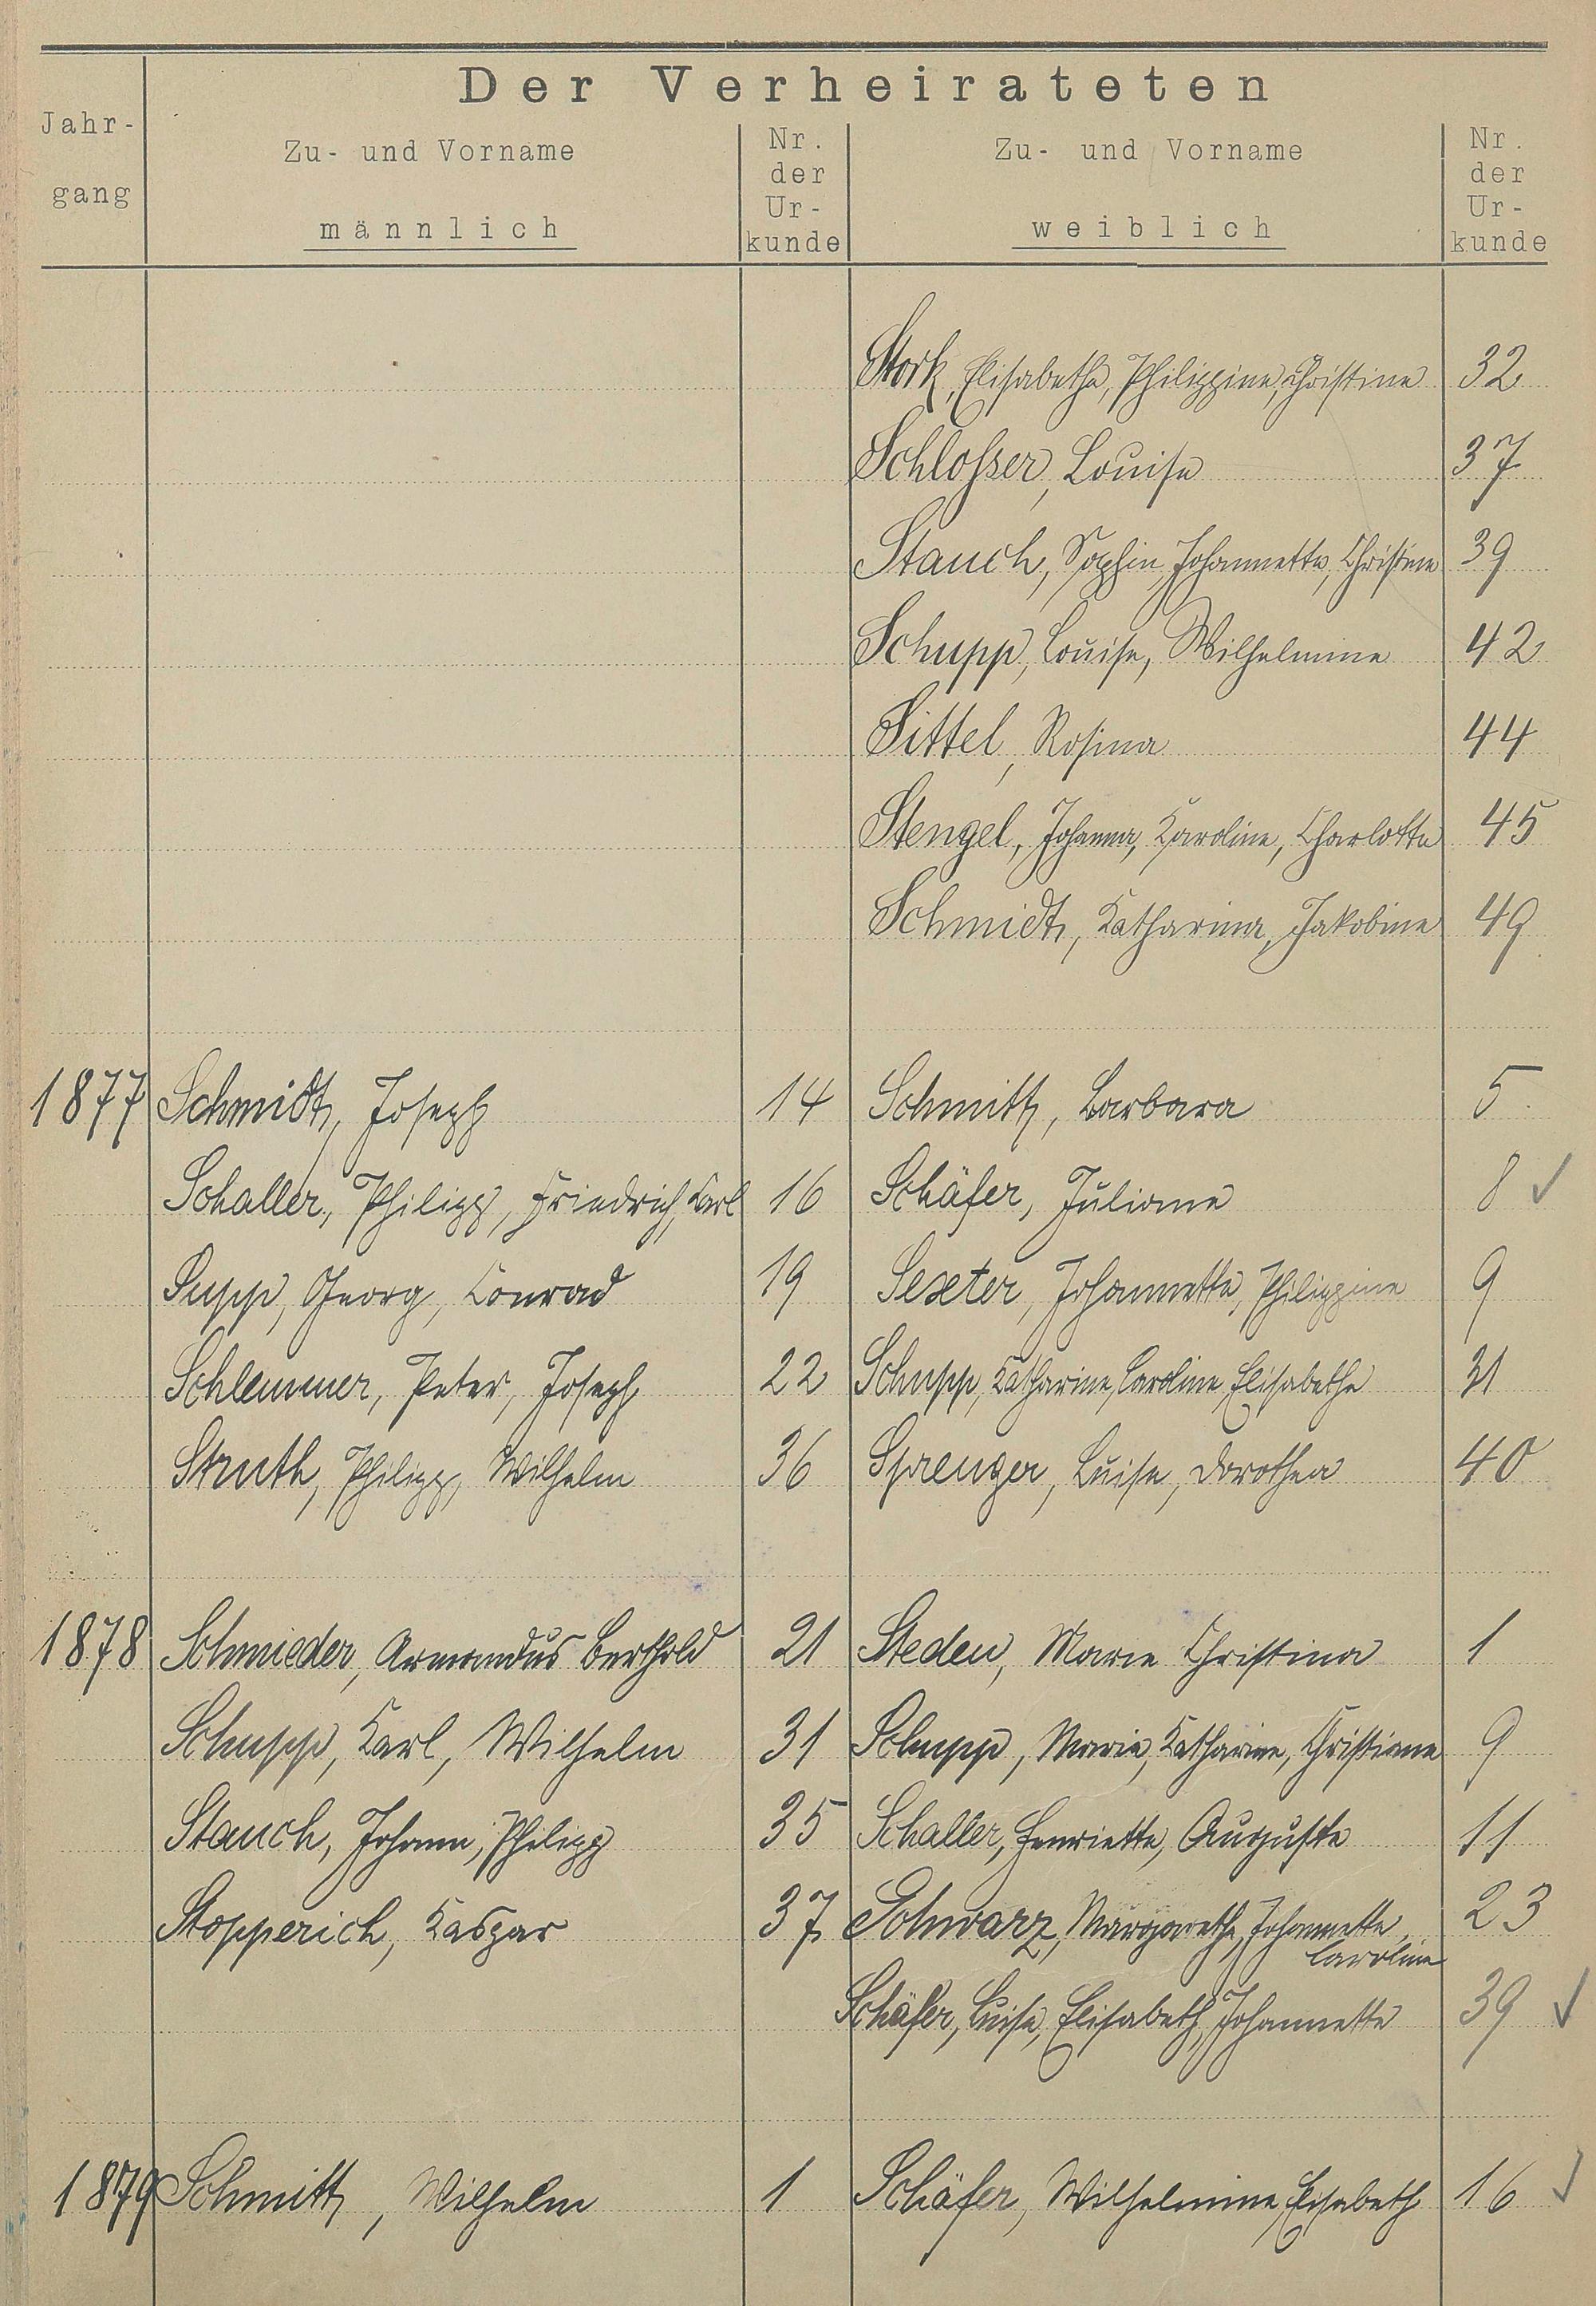 Der Verheirateten
Jahr-
gang
Zu- und Vorname
männlich
Nr.
der
Ur-
kunde
Zu- und Vorname
weiblich
Nr.
der
Ur-
kunde
Stork, Elisabetha, Philippine, Christine 32
Schlosser, Louise 37
Stauch, Sophie, Johannette, Christine 39
Schupp, Louise, Wilhelmine 42
Sittel, Rosina 44
Stengel, Johanna, Karoline, Charlotte 45
Schmidt, Katharina, Jakobine 49
1877 Schmidt, Joseph 14 Schmitt, Barbara 5
Schaller, Philipp, Friedrich, Carl 16 Schäfer, Juliane 8 ✓
Supp, Georg, Conrad 19 Sexter, Johannette, Philippine 9
Schlemmer, Peter, Joseph 22 Schupp, Katharine, Caroline, Elisabethe 31
Struth, Philipp, Wilhelm 36 Sprenger, Luise, Dorothea 40
1878 Schmieder, Armandus Berthold 21 Steden, Marie Christina 1
Schupp, Karl, Wilhelm 31 Schupp, Marie, Katharine, Christiane 9
Stauch, Johann, Philipp 35 Schaller, Henriette, Auguste 11
Stopperich, Kaspar 37 Schwarz, Margarethe, Johannette, 23
Caroline
Schäfer, Luise, Elisabeth, Johannette 39 ✓
1879 Schmitt, Wilhelm 1 Schäfer, Wilhelmine, Elisabeth 16 ✓